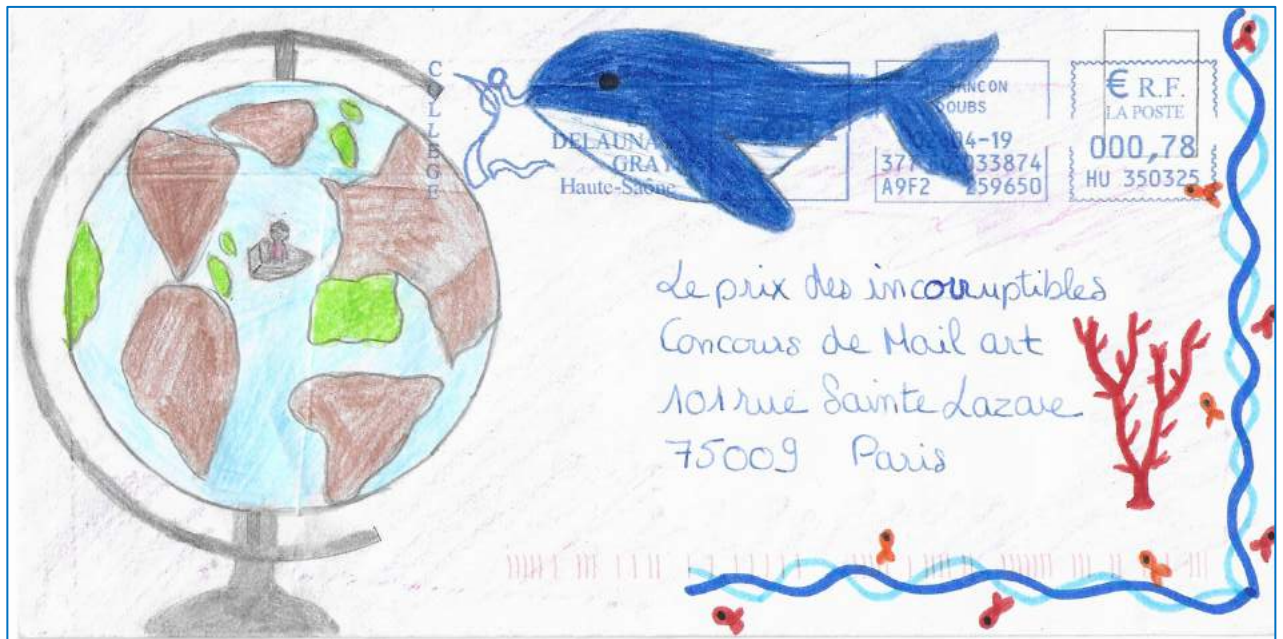 COLLEGE
DELAUNA
GRAY
Haute-Saône
DOUBS
04-19
033874
A9F2 259650
€ R.F.
LA POSTE
000,78
HU 350325
Le prix des incorruptibles
Concours de Mail art
101 rue Sainte Lazare
75009 Paris